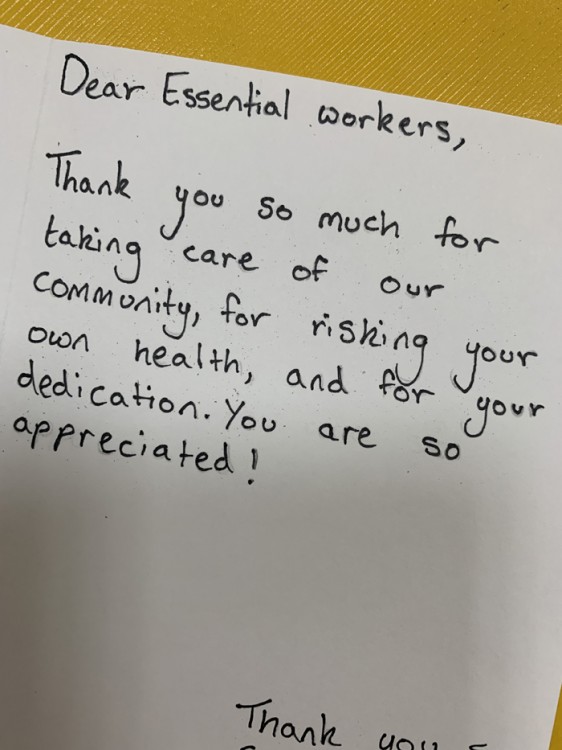 Dear Essential workers,
Thank you so much for
taking care of our
community, for risking your
own health, and for your
dedication. You are so
appreciated!
Thank you